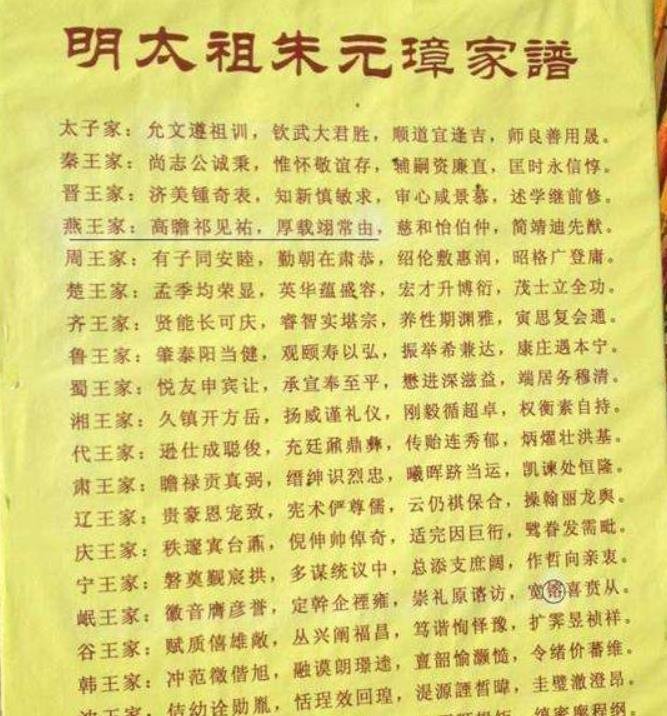 明太祖朱元璋家譜
太子家：允文遵祖训，钦武大君胜，顺道宜逢吉，师良善用晟。
秦王家：尚志公诚秉，惟怀敬谊存，辅嗣资廉直，匡时永信惇。
晋王家：济美锺奇表，知新慎敏求，审心咸景慕，述学继前修。
燕王家：高瞻祁见祐，厚载翊常由，慈和怡伯仲，简靖迪先猷。
周王家：有子同安睦，勤朝在肃恭，绍伦敷惠润，昭格广登庸。
楚王家：孟季均荣显，英华蕴盛容，宏才升博衍，茂士立全功。
齐王家：贤能长可庆，睿智实堪宗，养性期渊雅，寅思复会通。
鲁王家：肇泰阳当健，观颐寿以弘，振举希兼达，康庄遇本宁。
蜀王家：悦友申宾让，承宣奉至平，懋进深滋益，端居务穆清。
湘王家：久镇开方岳，扬威谨礼仪，刚毅循超卓，权衡素自持。
代王家：逊仕成聪俊，充廷鼐鼎彝，传贻连秀郁，炳燿壮洪基。
肃王家：瞻禄贡真弼，缙绅识烈忠，曦晖跻当运，凯谏处恒隆。
辽王家：贵豪恩宠致，宪术俨尊儒，云仍祺保合，操翰丽龙舆。
庆王家：秩邃寘台鼒，倪伸帅倬奇，适完因巨衍，眷发需毗。
宁王家：磐奠觐宸拱，多谋统议中，总添支庶阔，作哲向亲衷。
岷王家：徽音膺彦誉，定幹企禋雍，崇礼原谘访，宽镕喜贲从。
谷王家：赋质僖雄敞，丛兴阐福昌，笃谐恂怿豫，扩霁昱祯祥。
韩王家：冲范徵偕旭，融谟朗璟逵，亶韶愉灏慥，令绪价蕃维。
王家：佶幼诠勋胤，恬珵效回瑝，湜源諲晢暐，圭璧澈澄昂。
缜密廖程纲。